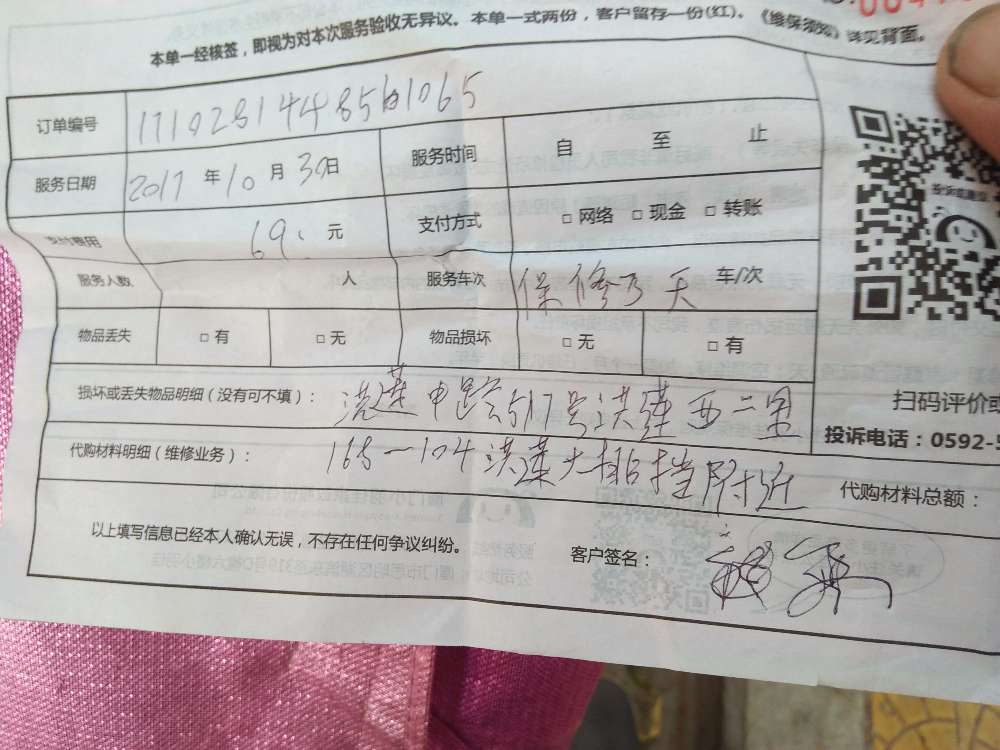 本单一经核签，即视为对本次服务验收无异议。本单一式两份，客户留存一份(红)。《维保须知》详见背面。
订单编号 171028144856b1065
服务日期 2017年10月30日 服务时间 自 至 止
支付费用 69. 元 支付方式 □ 网络 □ 现金 □ 转账
服务人数 人 服务车次 保修30天 车/次
物品丢失 □ 有 □ 无 物品损坏 □ 无 □ 有
扫码评价或
损坏或丢失物品明细（没有可不填）： 洪莲中路517号洪莲西二里
投诉电话：0592-5
代购材料明细（维修业务）： 165-104洪莲大排挡附近
代购材料总额：
以上填写信息已经本人确认无误，不存在任何争议纠纷。 客户签名：